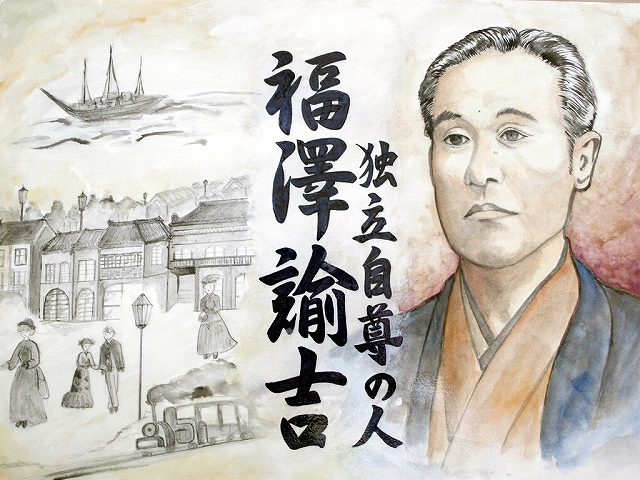 福澤諭吉
独立自尊の人